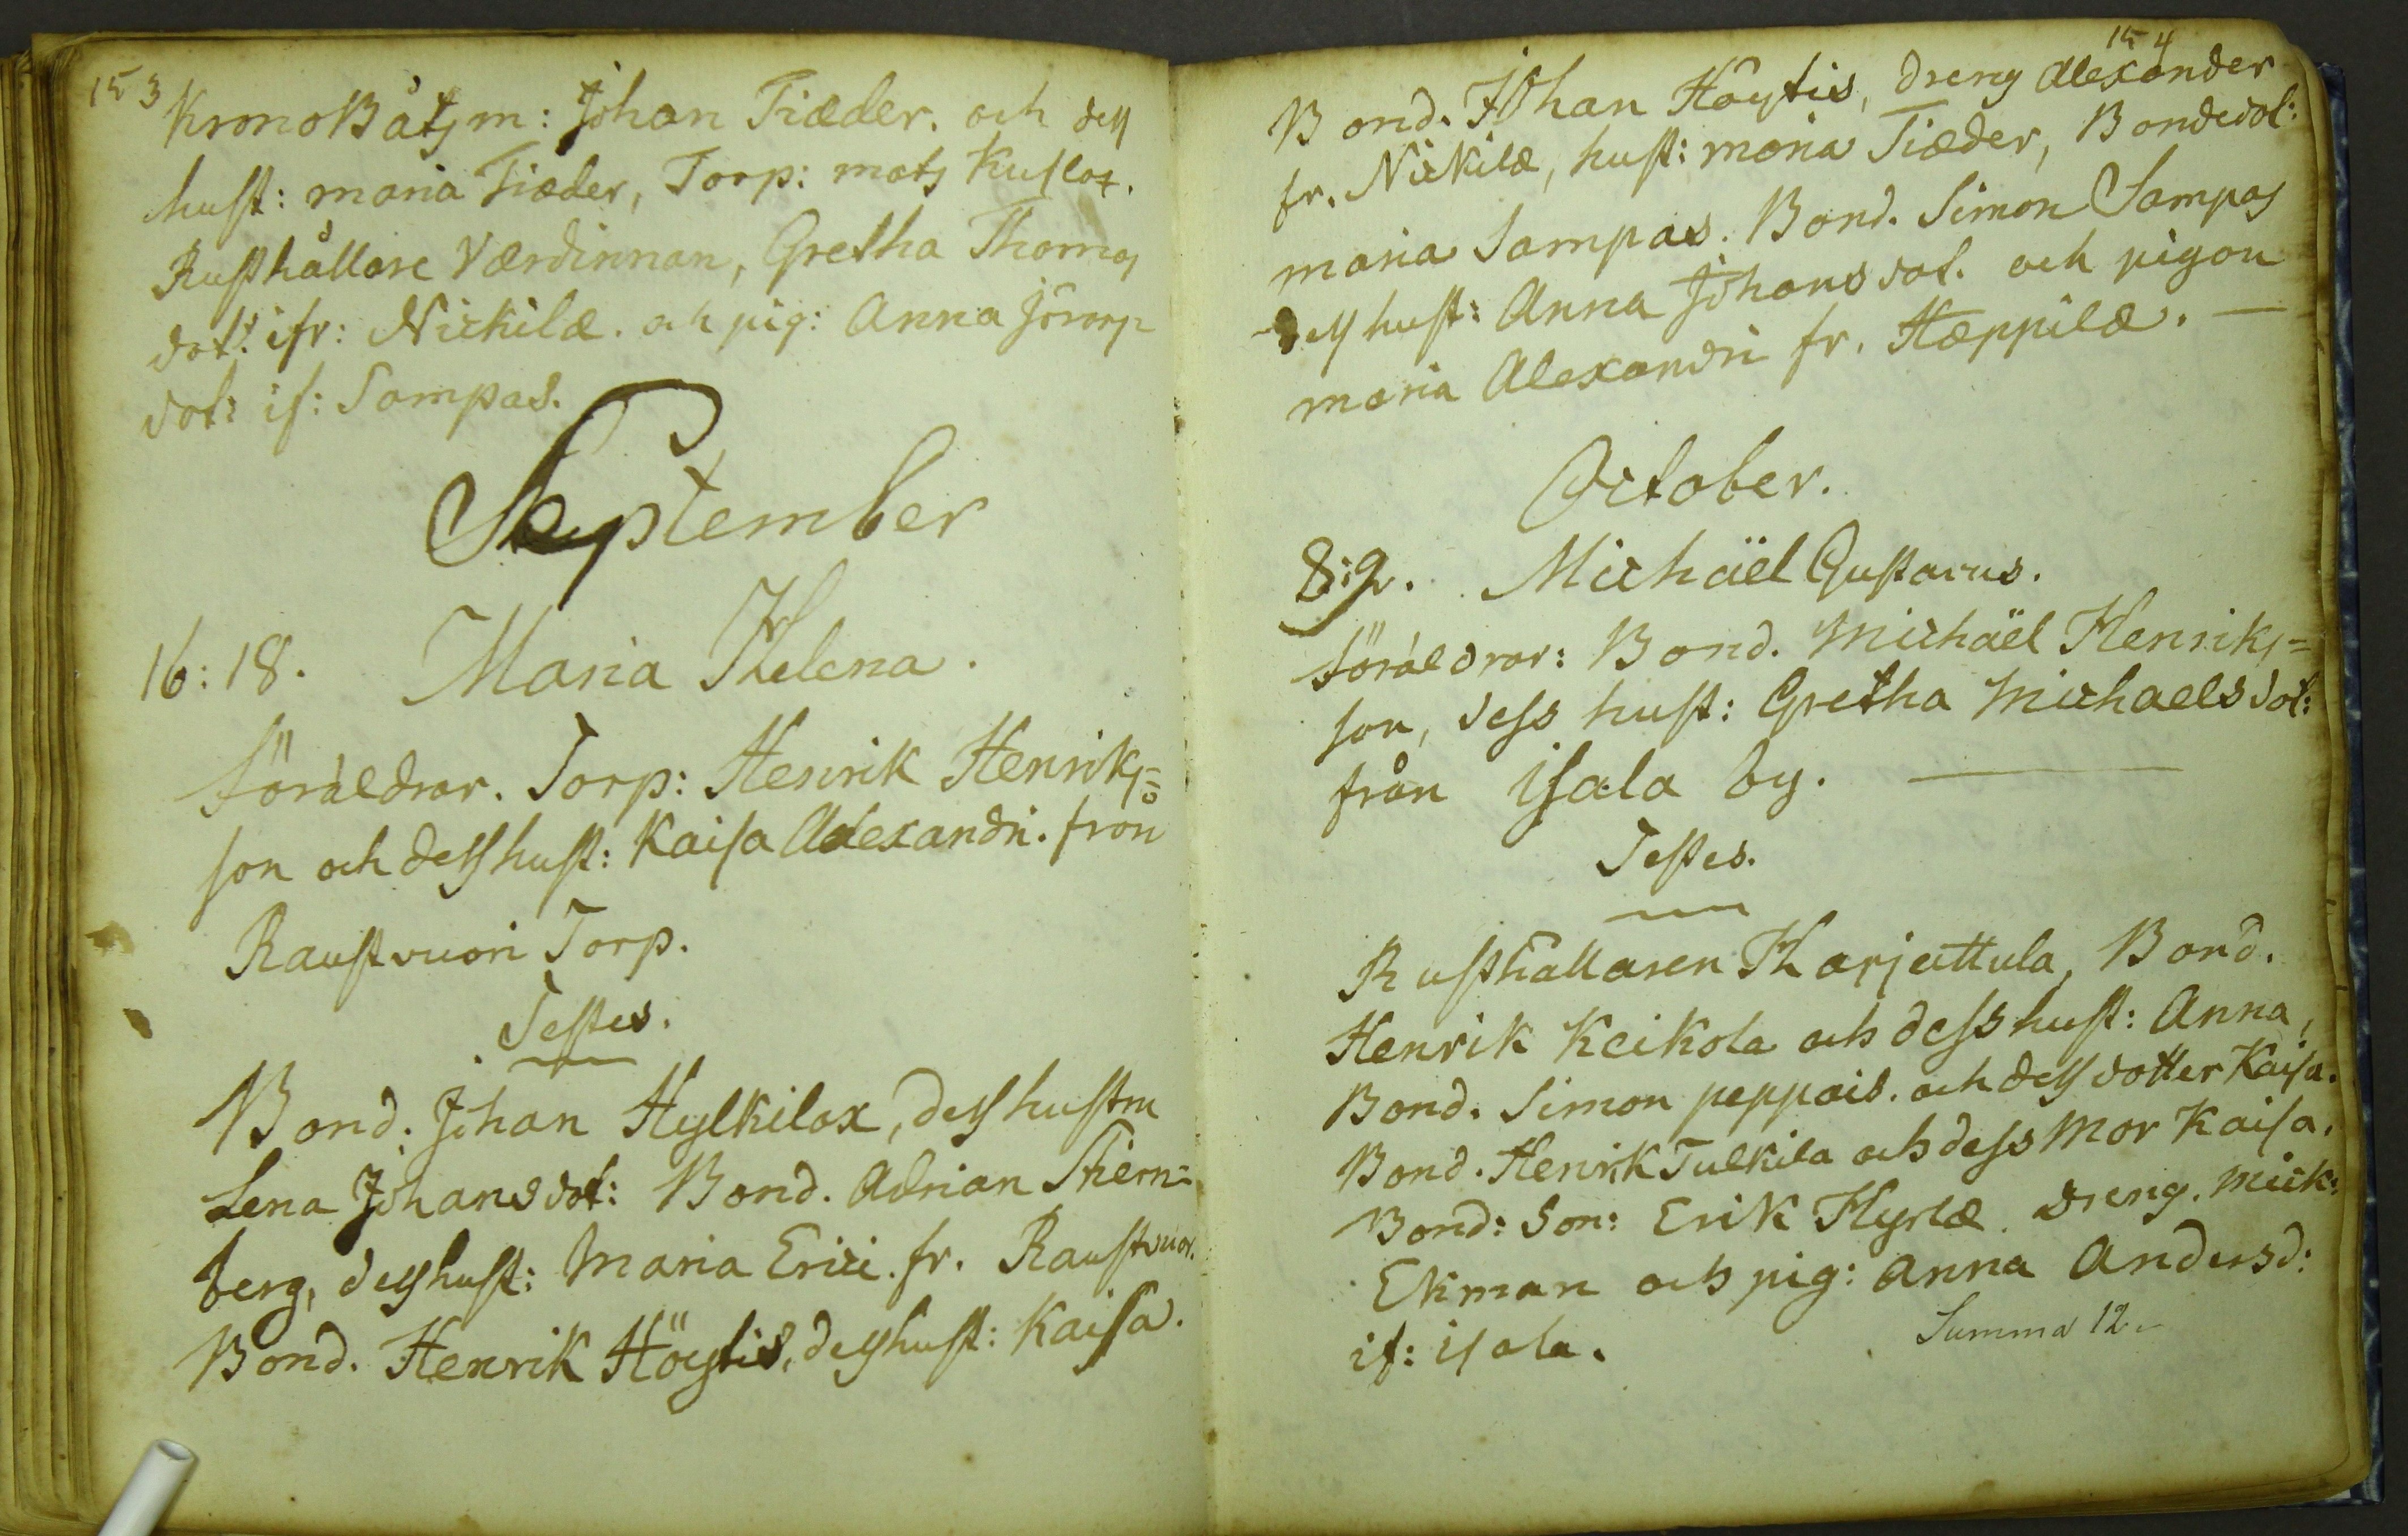 153
KronoBåtsm: Johan Tiæder. och dess
hust: maria Tiæder, Torp: mats Kuslax.
Rusthållare Værdinnan, Gretha Thomas
dot: ifr: Nickilæ. och pig: Anna Jörans
dot: if: Sampas.
September
16: 18. Maria Helena.
Föräldrar. Torp: Henrik Henriks=
son och dess hust: Kaisa Alexandri. från
Raustvuori Torp.
Testes.
Bond. Johan Hylkilax, dess hustru
Lena Johansdot: Bond. Adrian Stiern=
berg, dess hust: Maria Erici. fr. Raustvuor.
Bond. Henrik Höytis, dess hust: Kaisa.
154
Bond. Johan Höytis, dreng Alexander
fr. Nickilæ, hust: maria Tiæder, Bondedot:
maria Sampas. Bond. Simon Sampas
dess hust: Anna Johansdot. och pigan
maria Alexandri fr. Hæppilæ. —
October.
8:9. Michäel Gustavus.
föräldrar: Bond. Michäel Henriks=
son, dess hust: Gretha Michaelsdot:
från Isala by. —
Testes.
Rusthållaren Karjattula, Bond.
Henrik Keikola och dess hust: Anna,
Bond. Simon peppois. och dess dotter Kaisa.
Bond. Henrik Tulkila och dess Mor Kaisa.
Bond: Son: Erik Hyrlæ. dreng. Mick:
Ekman och pig: Anna Andersd:
if: isala.
Summa 12.